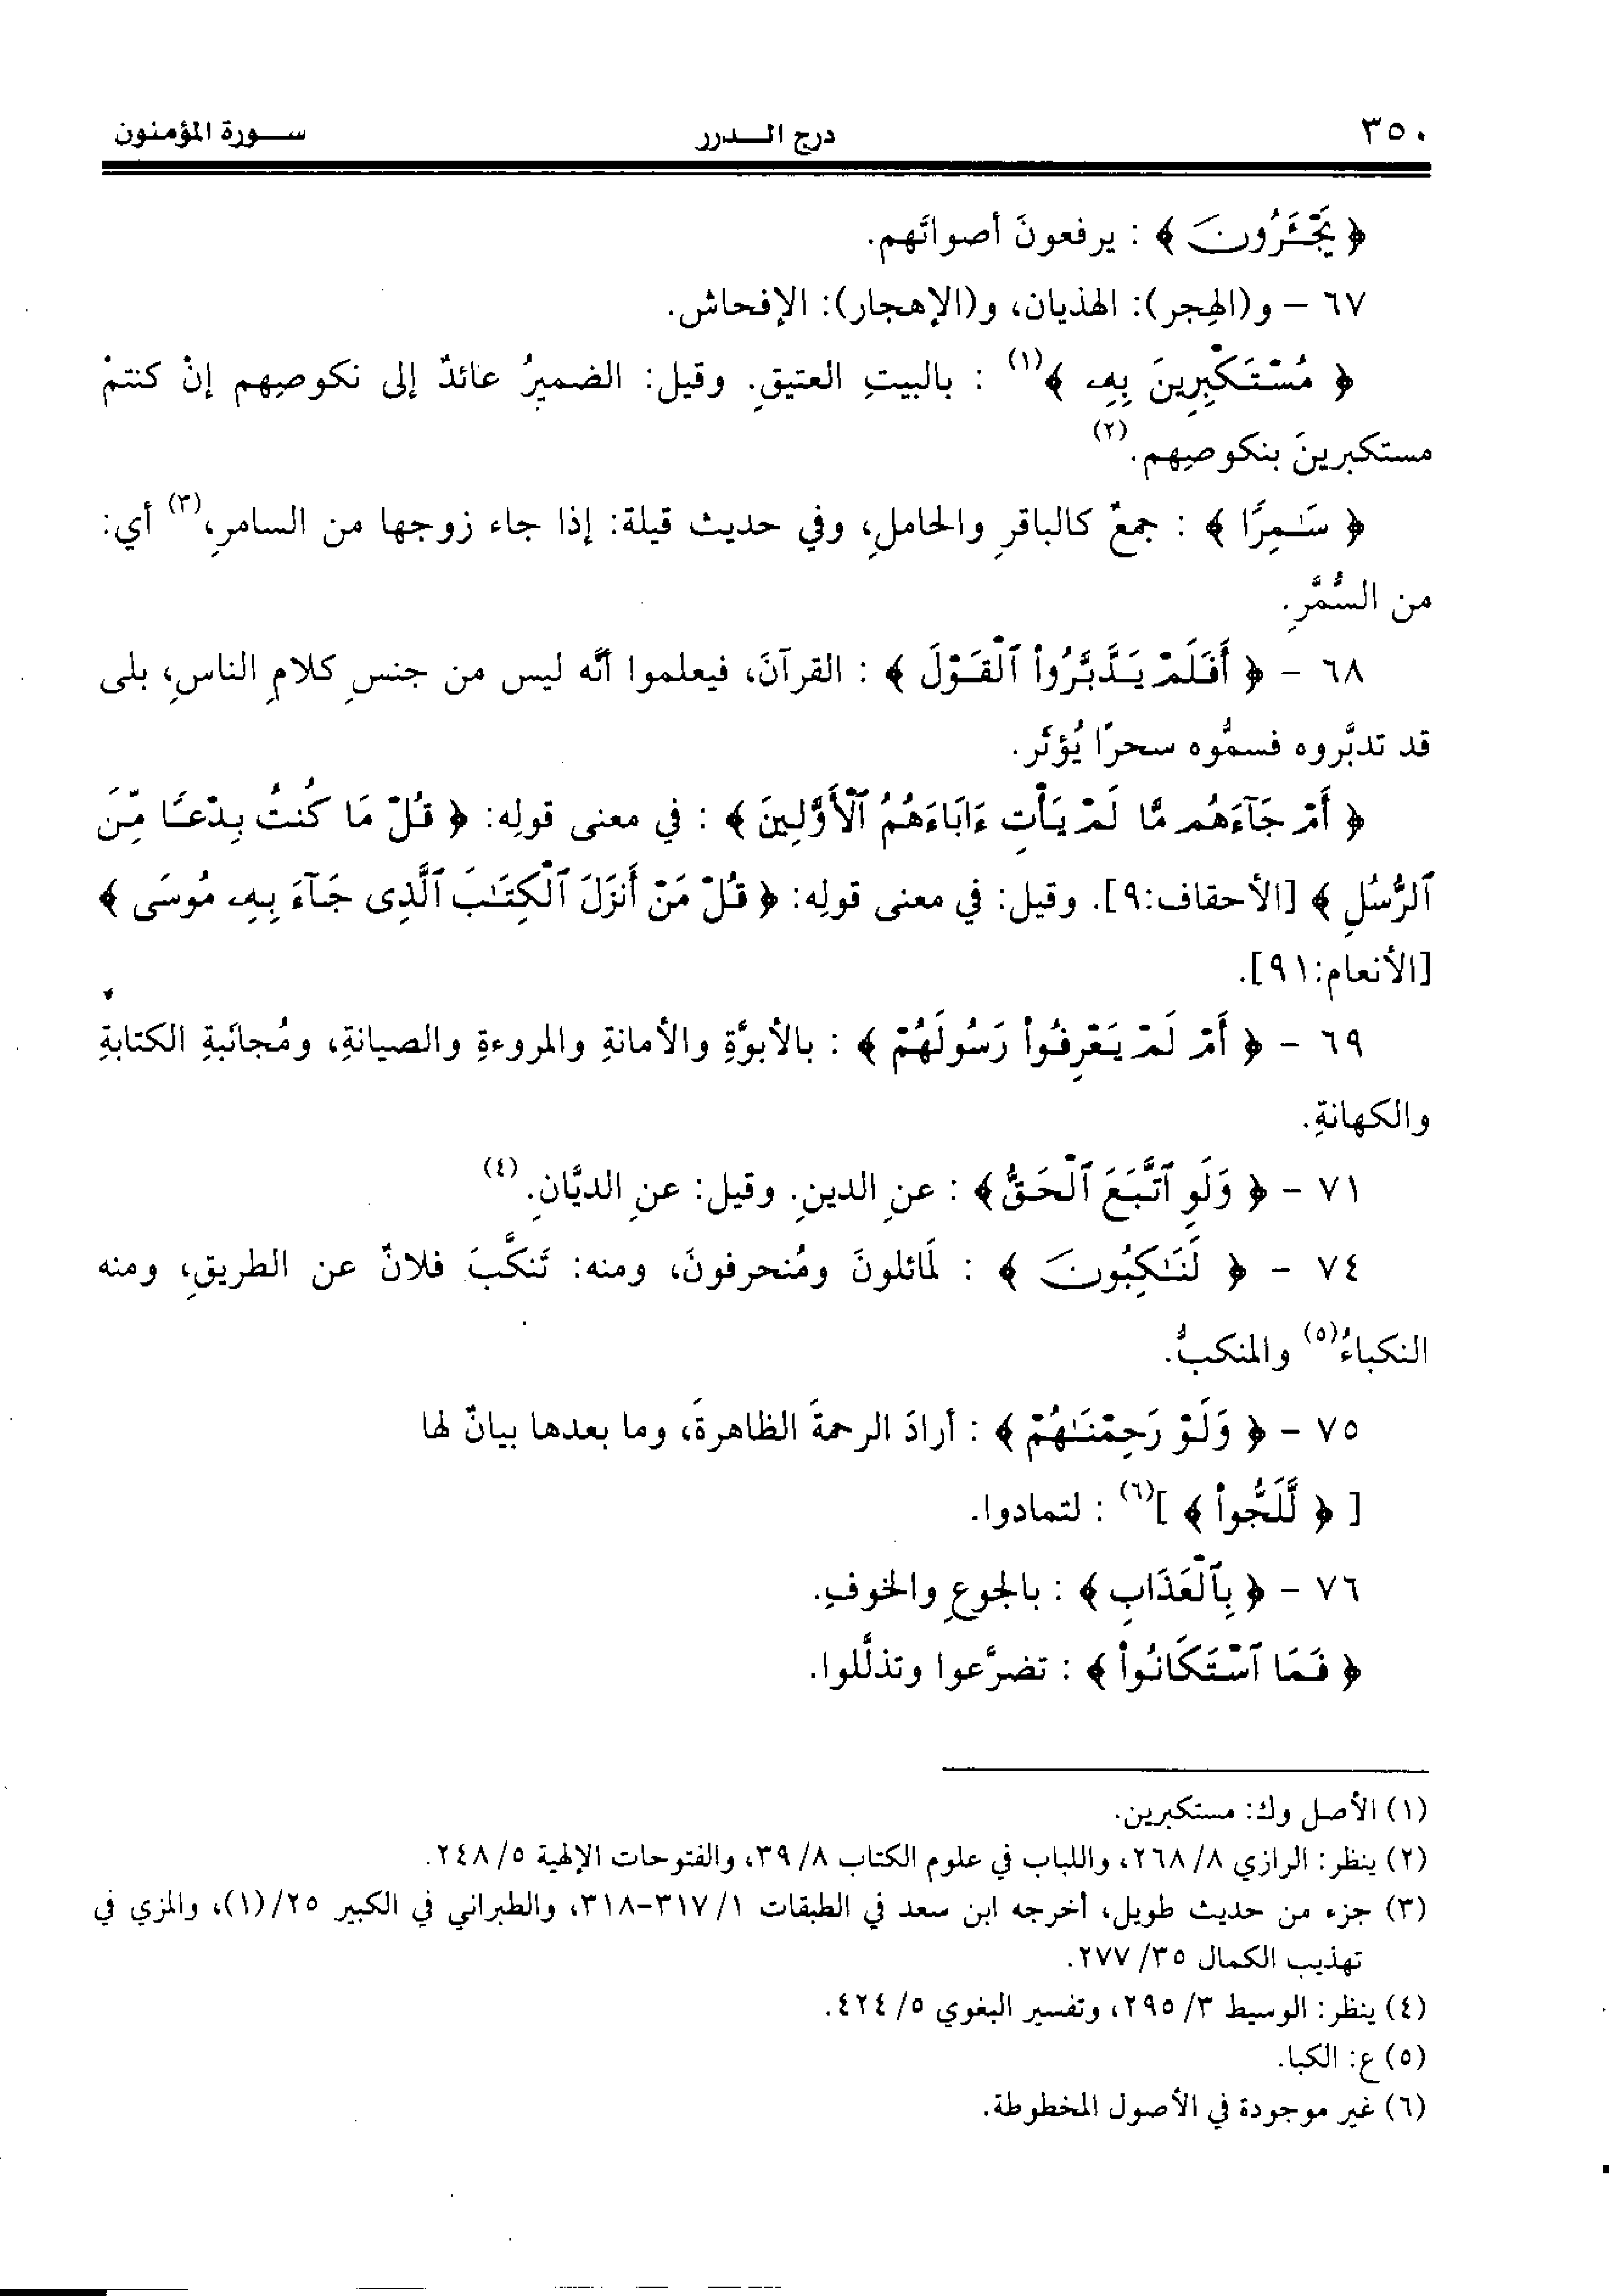 ٣٥٠ درج الـــدرر ســـورة المؤمنون
﴿ يَجْـَٔرُونَ ﴾ : يرفعونَ أصواتَهم.
٦٧ – و(الهِجر): الهذيان، و(الإهجار): الإفحاش.
﴿ مُسْتَكْبِرِينَ بِهِۦ ﴾(١) : بالبيتِ العتيقِ. وقيل: الضميرُ عائدٌ إلى نكوصِهم إنْ كنتمْ
مستكبرينَ بنكوصِهم.(٢)
﴿ سَـٰمِرًا ﴾ : جمعٌ كالباقرِ والحاملِ، وفي حديث قيلة: إذا جاء زوجها من السامرِ،(٣) أي:
من السُّمَّرِ.
٦٨ – ﴿ أَفَلَمْ يَدَّبَّرُوا۟ ٱلْقَوْلَ ﴾ : القرآنَ، فيعلموا أنَّه ليس من جنسِ كلامِ الناسِ، بلى
قد تدبَّروه فسمُّوه سحرًا يُؤثَر.
﴿ أَمْ جَآءَهُم مَّا لَمْ يَأْتِ ءَابَآءَهُمُ ٱلْأَوَّلِينَ ﴾ : في معنى قولِه: ﴿ قُلْ مَا كُنتُ بِدْعًا مِّنَ
ٱلرُّسُلِ ﴾ [الأحقاف:٩]. وقيل: في معنى قولِه: ﴿ قُلْ مَنْ أَنزَلَ ٱلْكِتَـٰبَ ٱلَّذِى جَآءَ بِهِۦ مُوسَى ﴾
[الأنعام:٩١].
٦٩ – ﴿ أَمْ لَمْ يَعْرِفُوا۟ رَسُولَهُمْ ﴾ : بالأبوَّةِ والأمانةِ والمروءةِ والصيانةِ، ومُجانَبةِ الكتابةِ
والكهانةِ.
٧١ – ﴿ وَلَوِ ٱتَّبَعَ ٱلْحَقُّ﴾ : عنِ الدينِ. وقيل: عنِ الديَّانِ.(٤)
٧٤ – ﴿ لَنَـٰكِبُونَ ﴾ : لَمائلونَ ومُنحرفونَ، ومنه: تَنكَّبَ فلانٌ عن الطريقِ، ومنه
النكباءُ(٥) والمنكبُ.
٧٥ – ﴿ وَلَوْ رَحِمْنَـٰهُمْ ﴾ : أرادَ الرحمةَ الظاهرةَ، وما بعدها بيانٌ لها
[ ﴿ لَّلَجُّوا۟ ﴾ ](٦) : لتمادوا.
٧٦ – ﴿ بِٱلْعَذَابِ ﴾ : بالجوعِ والخوفِ.
﴿ فَمَا ٱسْتَكَانُوا۟ ﴾ : تضرَّعوا وتذلَّلوا.
(١) الأصل وك: مستكبرين.
(٢) ينظر: الرازي ٨/ ٢٦٨، واللباب في علوم الكتاب ٨/ ٣٩، والفتوحات الإلهية ٥/ ٢٤٨.
(٣) جزء من حديث طويل، أخرجه ابن سعد في الطبقات ١/ ٣١٧–٣١٨، والطبراني في الكبير ٢٥/(١)، والمزي في
تهذيب الكمال ٣٥/ ٢٧٧.
(٤) ينظر: الوسيط ٣/ ٢٩٥، وتفسير البغوي ٥/ ٤٢٤.
(٥) ع: الكبا.
(٦) غير موجودة في الأصول المخطوطة.